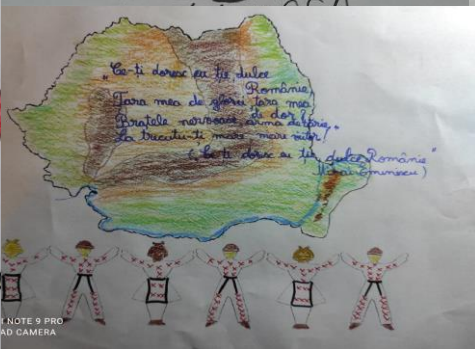 „Ce-ți doresc eu ție dulce
Românie,
Țara mea de glorii țara mea
de dor!
Brațele nervoase arma de tărie,
La trecutu-ți mare mare viitor!"
(„Ce-ți doresc eu ție, dulce Românie"
Mihai Eminescu)
NOTE 9 PRO
AD CAMERA